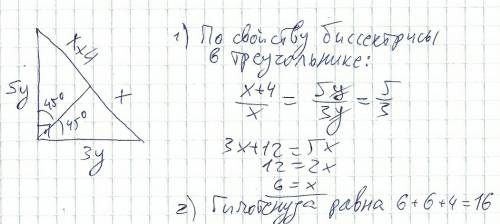 x+4
5y
45°
45°
x
3y
1) По свойству биссектрисы
в треугольнике:
x+4/x = 5y/3y = 5/3
3x+12 = 5x
12 = 2x
6 = x
2) Гипотенуза равна 6+6+4=16